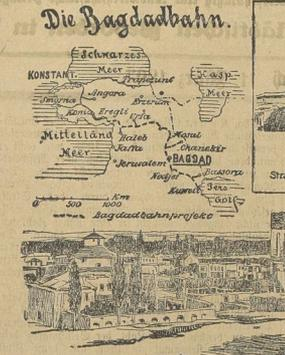 Die Bagdadbahn.
Schwarzes
Meer
KONSTANT.
Trapezunt
Kasp.
Meer
Angora
Erzerum
Smyrna
Konia Eregli Urfa
Mittelländ
Meer
Haleb
Jaffa
Mosul
Chanekir
Jerusalem
BAGDAD
Nedjef
Bassora
Kuweit
Pers
Golf
0 500 1000 Km
Bagdadbahnprojekt